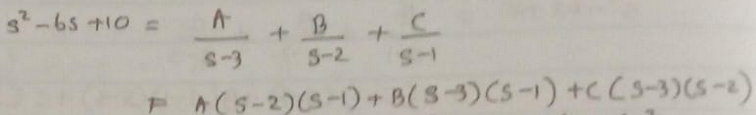 s² - 6s + 10 = A/(s-3) + B/(s-2) + C/(s-1)
= A(s-2)(s-1) + B(s-3)(s-1) + C(s-3)(s-2)